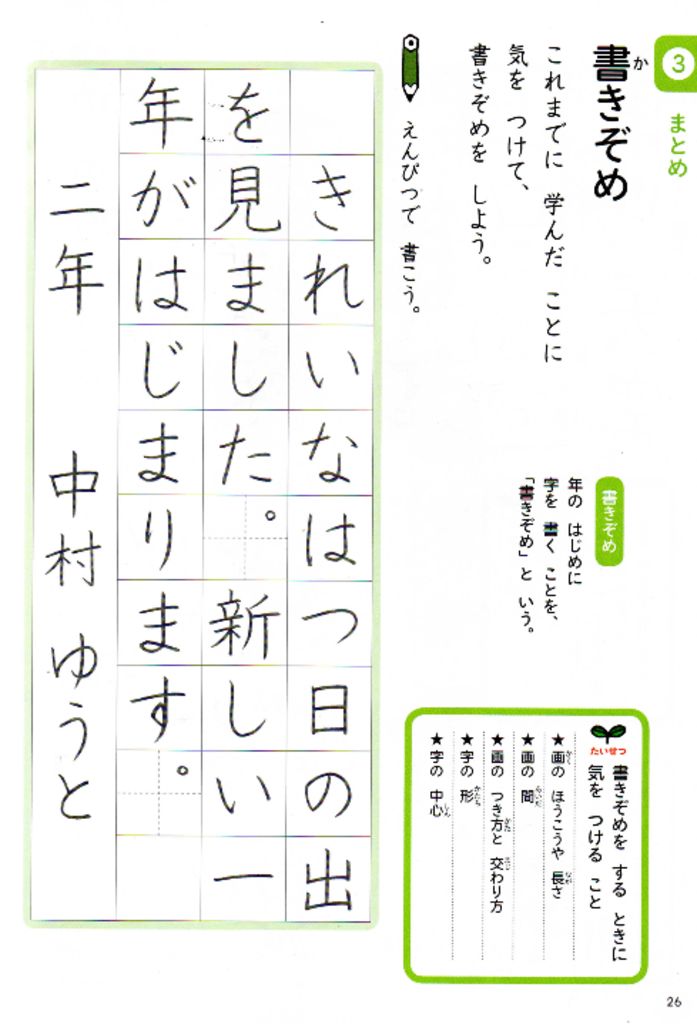 3
まとめ
書きぞめ
か
これまでに 学んだ ことに
気を つけて、
書きぞめを しよう。
えんぴつで 書こう。
書きぞめ
年の はじめに
字を 書く ことを、
「書きぞめ」と いう。
たいせつ
書きぞめを する ときに
気を つける こと
★画の ほうこうや 長さ
★画の 間
★画の つき方と 交わり方
★字の 形
★字の 中心
きれいなはつ日の出
を見ました。新しい一
年がはじまります。
二年 中村 ゆうと
26